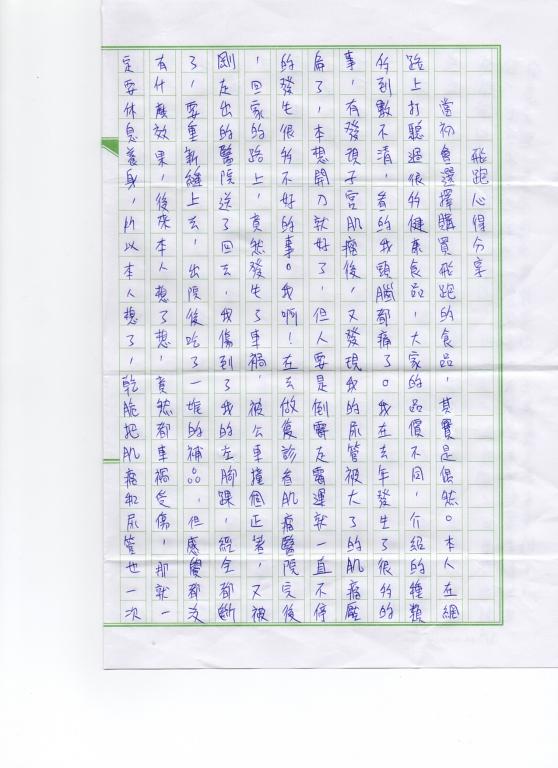 飛跑心得分享
當初會選擇購買飛跑的食品，其實是偶然。本人在網
路上打聽過很多健康食品，大家的品價不同，介紹的種類
多到數不清，看的我頭腦都痛了。我在去年發生了很多的
事，有發現子宮肌瘤後，又發現我的尿管被大了的肌瘤壓
扁了，本想開刀就好了，但人要是倒霉走霉運就一直不停
的發生很多不好的事。我啊！在去做復診看肌瘤醫院完後
，回家的路上，竟然發生了車禍，被公車撞個正著，又被
剛走出的醫院送了回去，我傷到了我的左腳踝，經全都斷
了，要重新縫上去，出院後吃了一堆的補品。，但感覺都沒
有什麼效果，後來本人想了想，竟然都車禍受傷，那就一
定要休息養身，所以本人想了，乾脆把肌瘤和尿管也一次